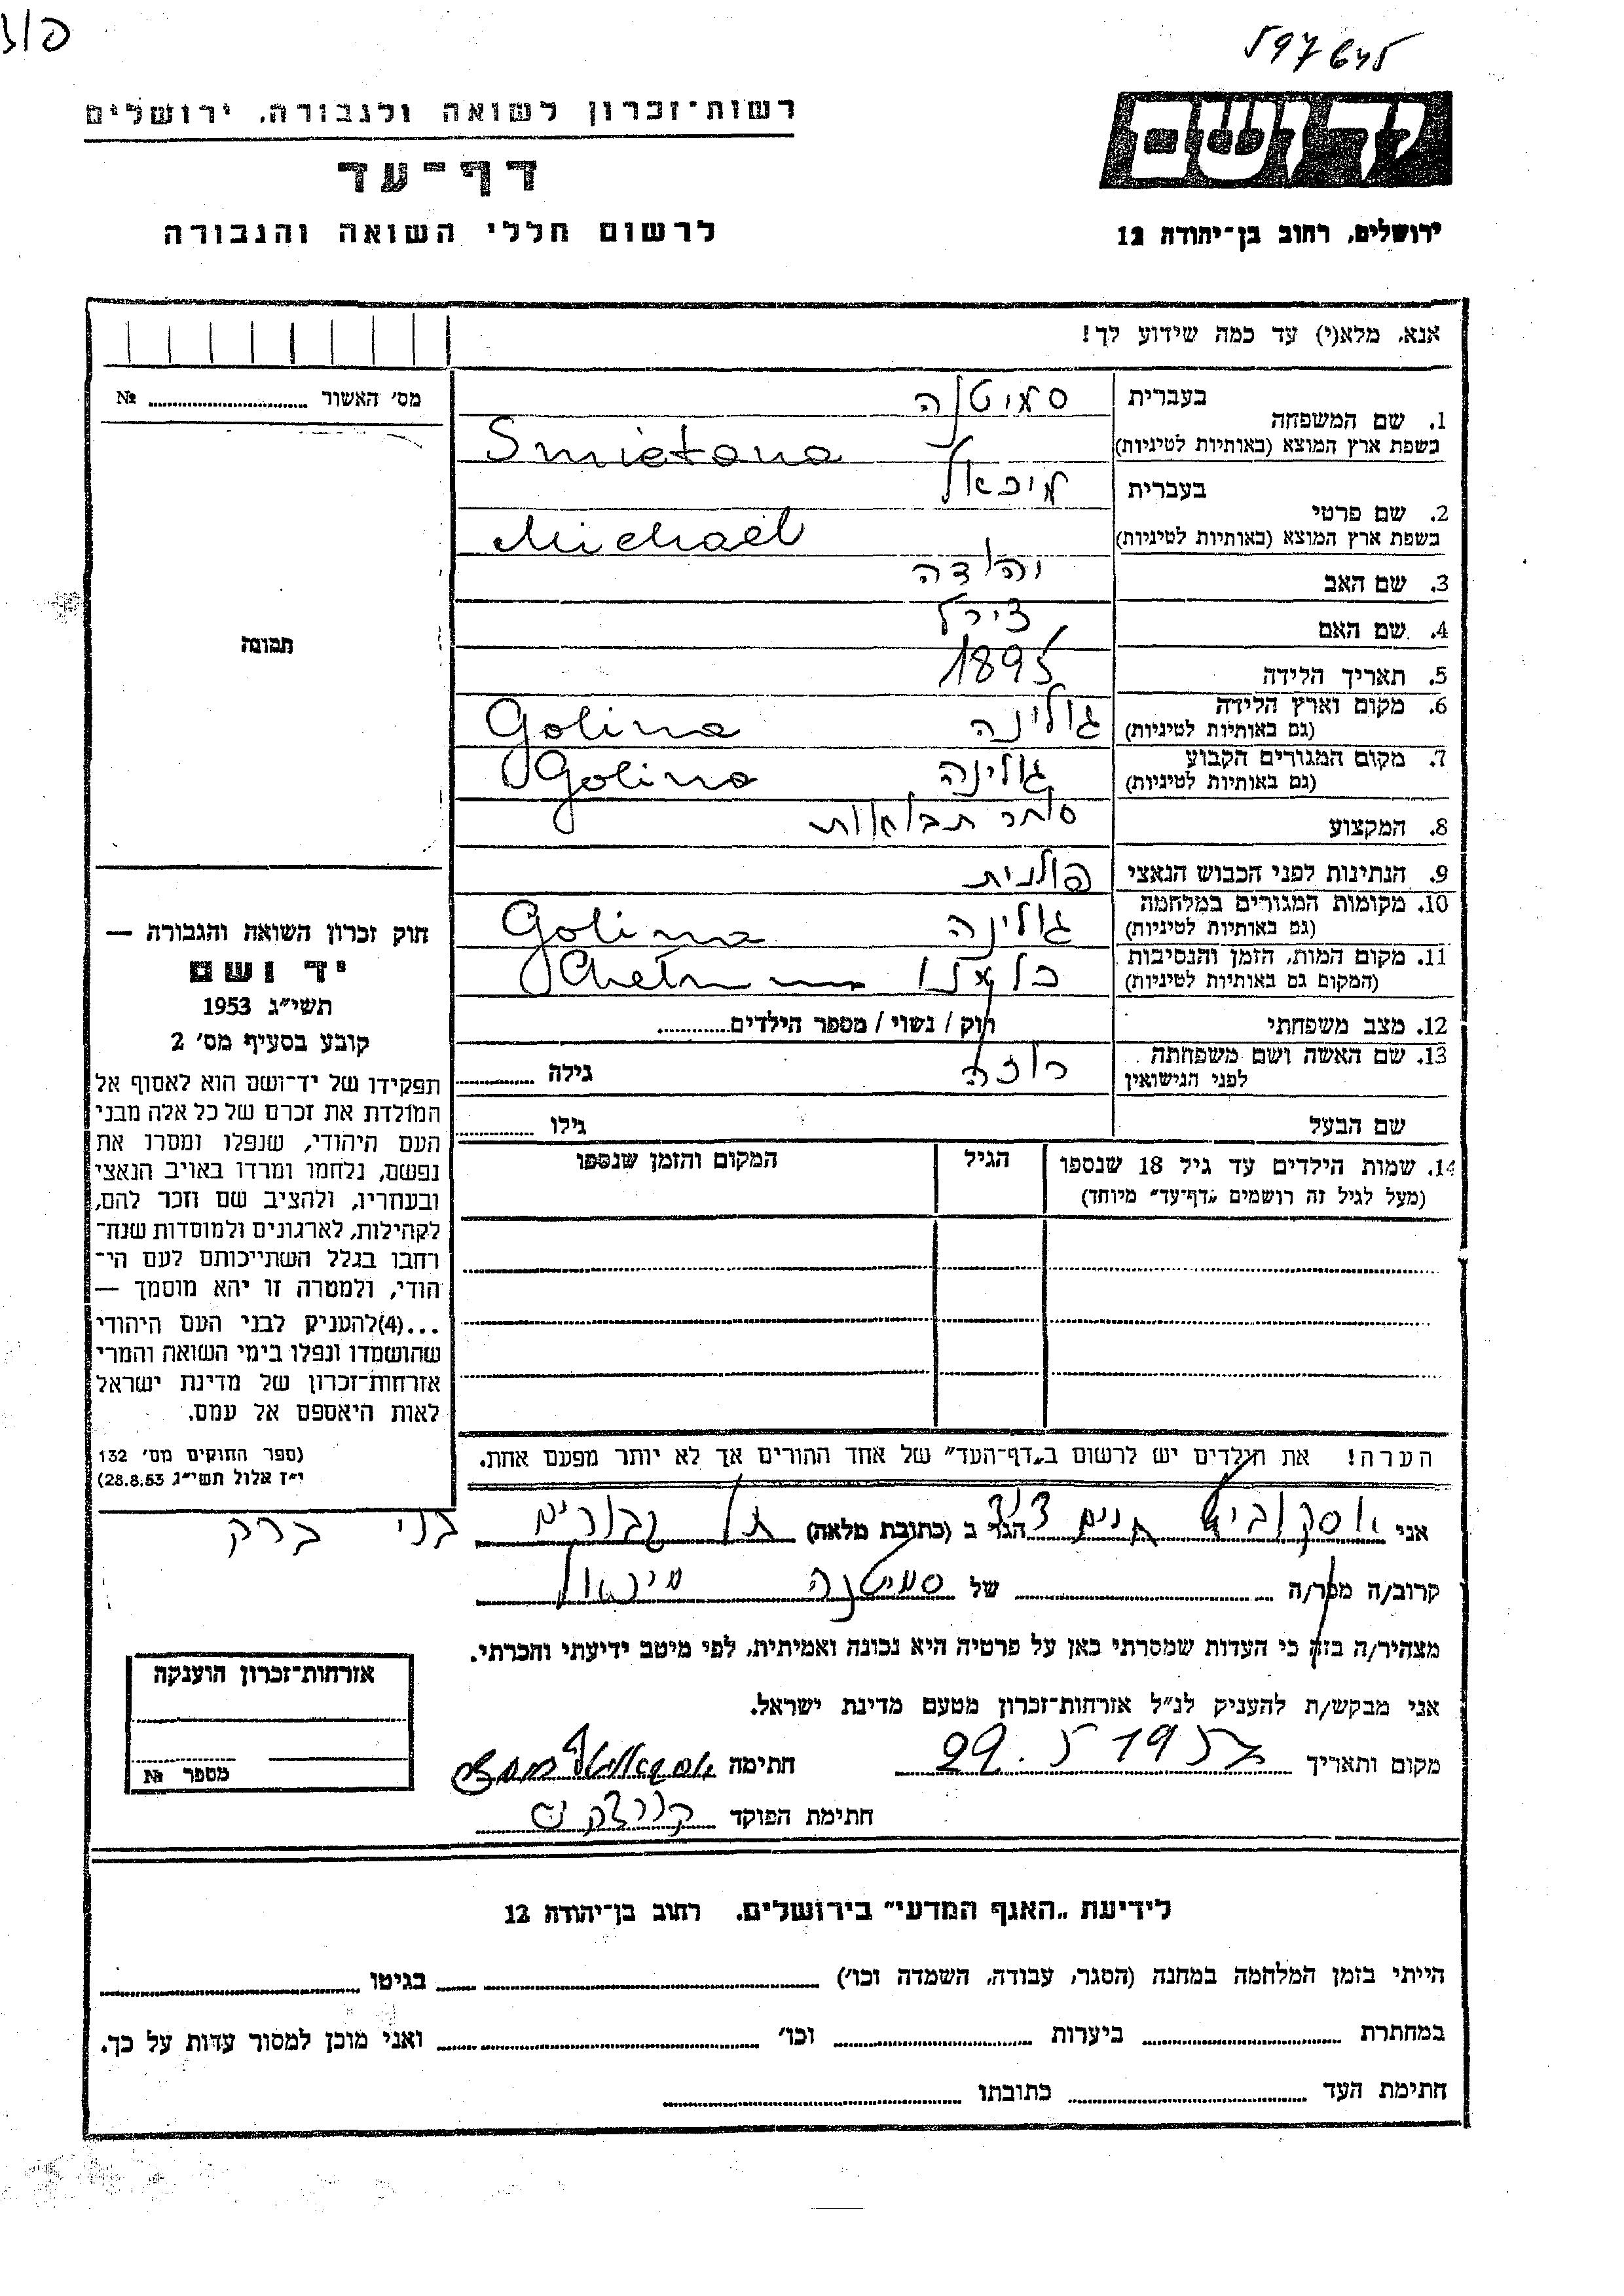 597645
רשות־זכרון לשואה ולגבורה, ירושלים
דף־עד
לרשום חללי השואה והגבורה
יד ושם
ירושלים, רחוב בן־יהודה 12
אנא, מלא(י) עד כמה שידוע לך!
מס׳ האשור ........ №
תמונה
1. שם המשפחה
בעברית סמיטנה
בשפת ארץ המוצא (באותיות לטיניות) Smietana
2. שם פרטי
בעברית מיכאל
בשפת ארץ המוצא (באותיות לטיניות) Michael
3. שם האב יהודה
4. שם האם צירל
5. תאריך הלידה 1895
6. מקום וארץ הלידה
(גם באותיות לטיניות) גולינה Golina
7. מקום המגורים הקבוע
(גם באותיות לטיניות) גולינה Golina
8. המקצוע סוחר תבואות
9. הנתינות לפני הכבוש הנאצי פולנית
10. מקומות המגורים במלחמה
(גם באותיות לטיניות) גולינה Golina
11. מקום המות, הזמן והנסיבות
(המקום גם באותיות לטיניות) כלמנו
12. מצב משפחתי רוק / נשוי / מספר הילדים........
13. שם האשה ושם משפחתה
לפני הנישואין רוזה גילה ........
שם הבעל גילו ........
14. שמות הילדים עד גיל 18 שנספו
(מעל לגיל זה רושמים „דף־עד״ מיוחד)
הגיל
המקום והזמן שנספו
הערה! את הילדים יש לרשום ב„דף־העד״ של אחד ההורים אך לא יותר מפעם אחת.
חוק זכרון השואה והגבורה —
יד ושם
תשי״ג 1953
קובע בסעיף מס׳ 2
תפקידו של יד־ושם הוא לאסוף אל
המולדת את זכרם של כל אלה מבני
העם היהודי, שנפלו ומסרו את
נפשם, נלחמו ומרדו באויב הנאצי
ובעוזריו, ולהציב שם וזכר להם,
לקהילות, לארגונים ולמוסדות שנח־
רבו בגלל השתייכותם לעם הי־
הודי, ולמטרה זו יהא מוסמך —
...(4)להעניק לבני העם היהודי
שהושמדו ונפלו בימי השואה והמרי
אזרחות־זכרון של מדינת ישראל
לאות היאספם אל עמם.
(ספר החוקים מס׳ 132
י״ז אלול תשי״ג 28.8.53)
אני אסקוביץ חיים דוד הגר ב (כתובת מלאה) תל גבורים בני ברק
קרוב/ה מכר/ה ........ של סמיטנה מיכאל
מצהיר/ה בזה כי העדות שמסרתי כאן על פרטיה היא נכונה ואמיתית, לפי מיטב ידיעתי והכרתי.
אני מבקש/ת להעניק לנ״ל אזרחות־זכרון מטעם מדינת ישראל.
מקום ותאריך 29. 5 1957 חתימה
חתימת הפוקד
אזרחות־זכרון הוענקה
מספר №
לידיעת „האגף המדעי״ בירושלים, רחוב בן־יהודה 12
הייתי בזמן המלחמה במחנה (הסגר, עבודה, השמדה וכו׳) ........ בגיטו ........
במחתרת ........ ביערות ........ וכו׳ ........ ואני מוכן למסור עדות על כך.
חתימת העד ........ כתובתו ........